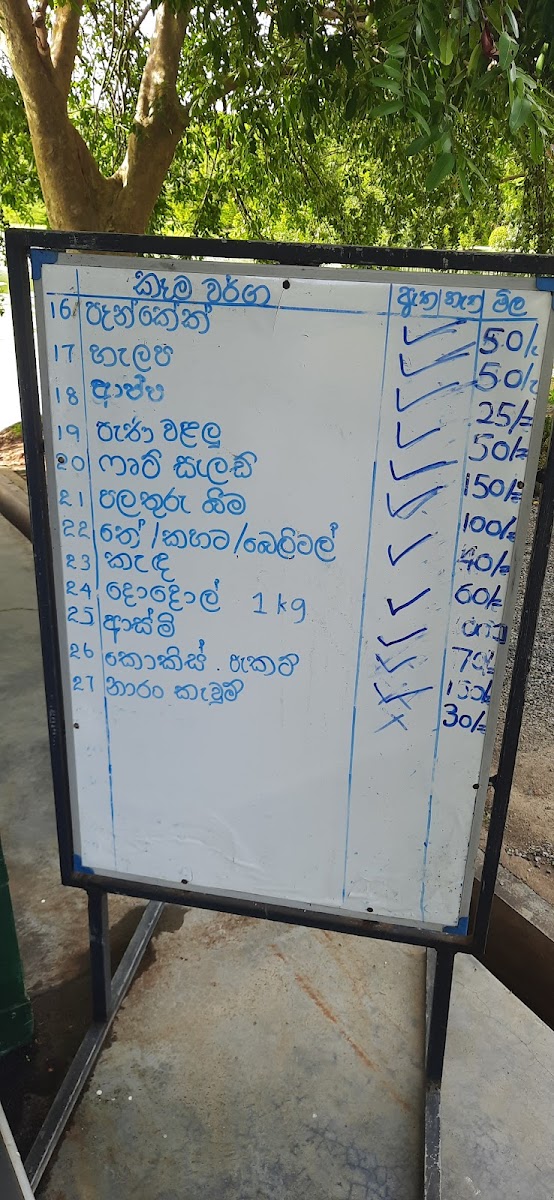 කෑම වර්ග ඇත නැත මිල
16 පෑන්කේක් ✓ 50/=
17 හැලප ✓ 50/=
18 ආප්ප ✓ 25/=
19 පැණි වළලු ✓ 50/=
20 ෆෲට් සැලඩ් ✓ 150/=
21 පලතුරු බීම ✓ 100/=
22 තේ/කහට/බෙලිමල් ✓ 40/=
23 කැඳ ✓ 60/=
24 දොදොල් 1kg
25 ආස්මි 70/=
26 කොකිස් පැකට්
27 නාරං කැවුම් × 30/=